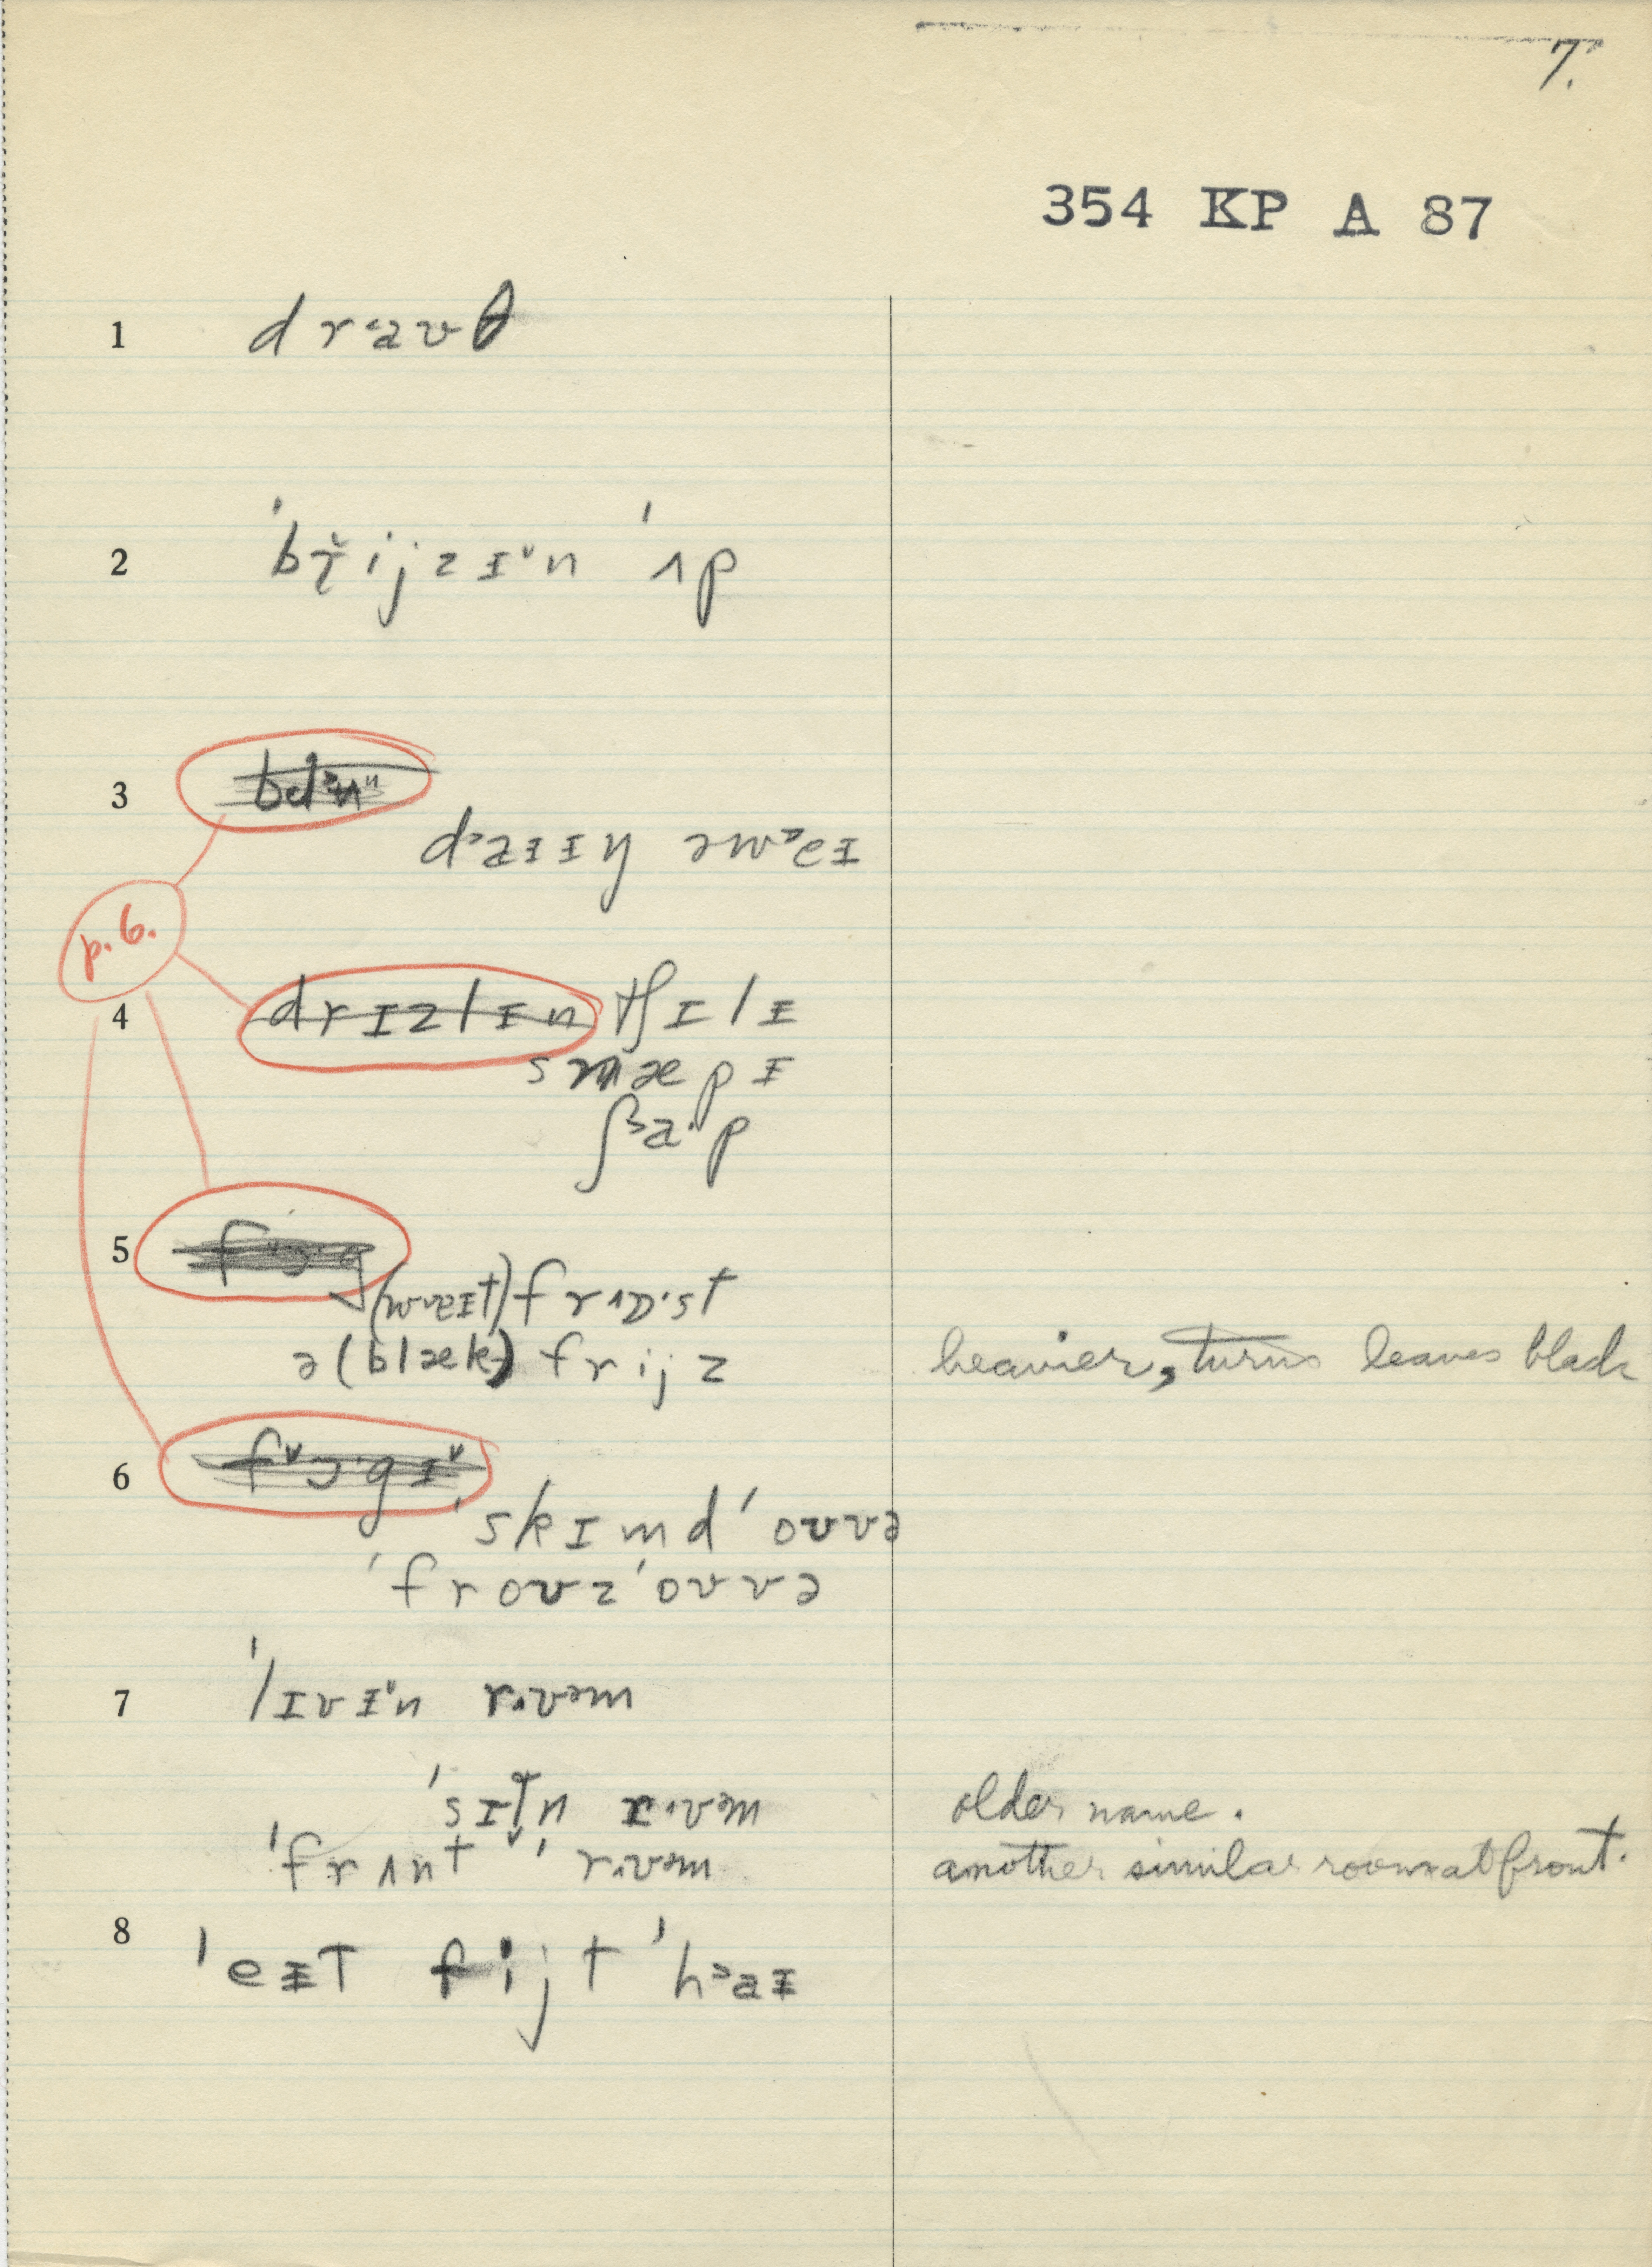 7.
354 KP A 87
1 drˈaʊθ
2 ˈbr̆ijzɪ̵ˇn ˈʌp
3
dᵊaɪɪŋ əwᵊeɪ
p.6.
4 drɪzlɪn tʃɪlɪ
snæpɪ
ʃᵌaˑp
5
(wˇeɪt) frʌɒˑst
ə(blæk) frijz heavier, turns leaves black
6 fˇɔˑgɪˇ
ˈskɪmdˈoʊvə
ˈfroʊzˈoʊvə
7 ˈlɪvɪˇn rˑʊəm
ˈsɪtn rˑʊəm older name.
ˈfrʌnt ˈrˑʊəm another similar room at front.
8 ˈeɪt fijt ˈhᵊaɪ